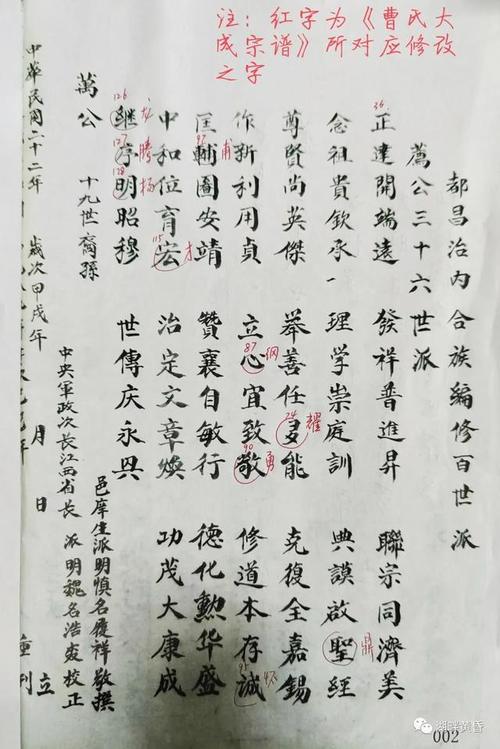 注：红字为《曹氏大
成宗谱》所对应修改
之字
都昌治内合族編修百世派
萬公三十六世派
36
正達開端遠 發祥普進昇 聯宗同濟美
念祖貴欽承 理學崇庭訓 典謨啟聖經
鼎
尊賢尚英傑 舉善任能 克復全嘉錫
耀
作新利用貞 立心宜致敬 修道本存誠
87 纲
90 勇
95 怀
匡輔圖安靖 贊襄自敏行 德化勳华盛
97 甫
中和位育宏 治定文章煥 功茂大康成
115 才
繼序明昭穆 世傳庆永興
126 龙
127 腾
128 杨
萬公 十九世裔孫
邑庠生派明慎名履祥敬撰
中央軍政次長江西省長 派明魏名浩森校正
中華民國二十二年 歲次甲戌年 月 日 立
重刊
湖畔黄昏
002